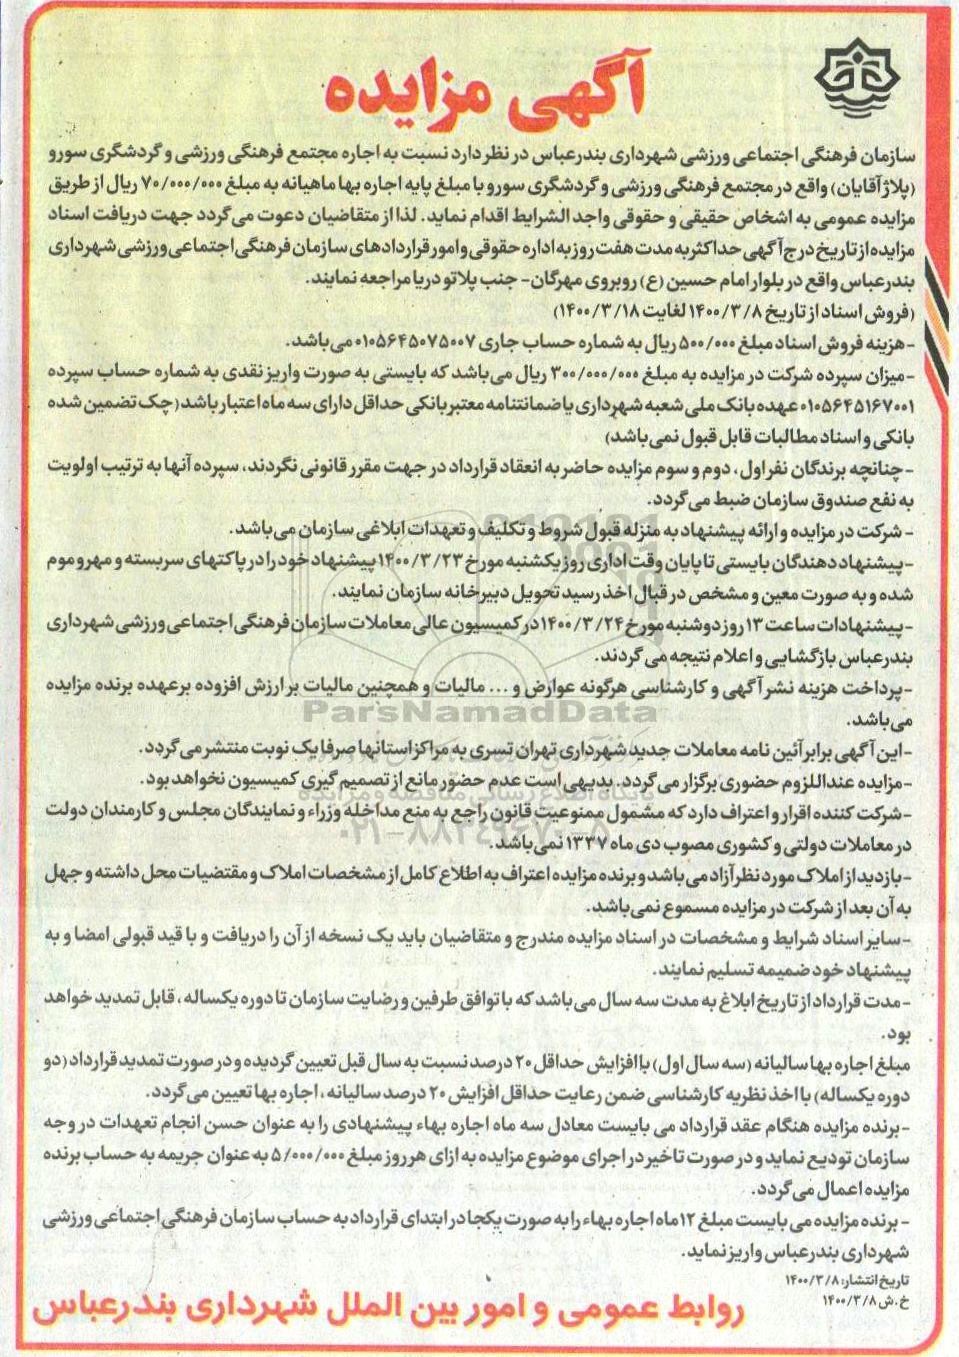 آگهی مزایده
سازمان فرهنگی اجتماعی ورزشی شهرداری بندرعباس در نظر دارد نسبت به اجاره مجتمع فرهنگی ورزشی و گردشگری سورو
(پلاژ آقایان) واقع در مجتمع فرهنگی ورزشی و گردشگری سورو با مبلغ پایه اجاره بها ماهیانه به مبلغ ۷۰/۰۰۰/۰۰۰ ریال از طریق
مزایده عمومی به اشخاص حقیقی و حقوقی واجد الشرایط اقدام نماید. لذا از متقاضیان دعوت می گردد جهت دریافت اسناد
مزایده از تاریخ درج آگهی حداکثر به مدت هفت روز به اداره حقوقی و امور قراردادهای سازمان فرهنگی اجتماعی ورزشی شهرداری
بندرعباس واقع در بلوار امام حسین (ع) روبروی مهرگان- جنب پلاتو دریا مراجعه نمایند.
(فروش اسناد از تاریخ ۱۴۰۰/۳/۸ لغایت ۱۴۰۰/۳/۱۸)
-هزینه فروش اسناد مبلغ ۵۰۰/۰۰۰ ریال به شماره حساب جاری ۰۱۰۵۶۴۵۰۷۵۰۰۷ می باشد.
-میزان سپرده شرکت در مزایده به مبلغ ۳۰۰/۰۰۰/۰۰۰ ریال می باشد که بایستی به صورت واریز نقدی به شماره حساب سپرده
۰۱۰۵۶۴۵۱۶۷۰۰۱ عهده بانک ملی شعبه شهرداری یا ضمانتنامه معتبر بانکی حداقل دارای سه ماه اعتبار باشد (چک تضمین شده
بانکی و اسناد مطالبات قابل قبول نمی باشد)
-چنانچه برندگان نفر اول، دوم و سوم مزایده حاضر به انعقاد قرارداد در جهت مقرر قانونی نگردند، سپرده آنها به ترتیب اولویت
به نفع صندوق سازمان ضبط می گردد.
- شرکت در مزایده و ارائه پیشنهاد به منزله قبول شروط و تکلیف و تعهدات ابلاغی سازمان می باشد.
-پیشنهاد دهندگان بایستی تا پایان وقت اداری روز یکشنبه مورخ ۱۴۰۰/۳/۲۳ پیشنهاد خود را در پاکتهای سربسته و مهر و موم
شده و به صورت معین و مشخص در قبال اخذ رسید تحویل دبیرخانه سازمان نمایند.
-پیشنهادات ساعت ۱۳ روز دوشنبه مورخ ۱۴۰۰/۳/۲۴ در کمیسیون عالی معاملات سازمان فرهنگی اجتماعی ورزشی شهرداری
بندرعباس بازگشایی و اعلام نتیجه می گردند.
-پرداخت هزینه نشر آگهی و کارشناسی هرگونه عوارض و ... مالیات و همچنین مالیات بر ارزش افزوده بر عهده برنده مزایده
می باشد.
ParsNamadData
-این آگهی برابر آئین نامه معاملات جدید شهرداری تهران تسری به مراکز استانها صرفا یک نوبت منتشر می گردد.
-مزایده عنداللزوم حضوری برگزار می گردد. بدیهی است عدم حضور مانع از تصمیم گیری کمیسیون نخواهد بود.
-شرکت کننده اقرار و اعتراف دارد که مشمول ممنوعیت قانون راجع به منع مداخله وزراء و نمایندگان مجلس و کارمندان دولت
۰۲۱-۸۸۳۴۹۶۷۰-۵
در معاملات دولتی و کشوری مصوب دی ماه ۱۳۳۷ نمی باشد.
-بازدید از املاک مورد نظر آزاد می باشد و برنده مزایده اعتراف به اطلاع کامل از مشخصات املاک و مقتضیات محل داشته و جهل
به آن بعد از شرکت در مزایده مسموع نمی باشد.
-سایر اسناد شرایط و مشخصات در اسناد مزایده مندرج و متقاضیان باید یک نسخه از آن را دریافت و با قید قبولی امضا و به
پیشنهاد خود ضمیمه تسلیم نمایند.
-مدت قرارداد از تاریخ ابلاغ به مدت سه سال می باشد که با توافق طرفین و رضایت سازمان تا دوره یکساله، قابل تمدید خواهد
بود.
مبلغ اجاره بها سالیانه (سه سال اول) با افزایش حداقل ۲۰ درصد نسبت به سال قبل تعیین گردیده و در صورت تمدید قرارداد (دو
دوره یکساله) با اخذ نظریه کارشناسی ضمن رعایت حداقل افزایش ۲۰ درصد سالیانه، اجاره بها تعیین می گردد.
-برنده مزایده هنگام عقد قرارداد می بایست معادل سه ماه اجاره بهاء پیشنهادی را به عنوان حسن انجام تعهدات در وجه
سازمان تودیع نماید و در صورت تاخیر در اجرای موضوع مزایده به ازای هر روز مبلغ ۵/۰۰۰/۰۰۰ به عنوان جریمه به حساب برنده
مزایده اعمال می گردد.
- برنده مزایده می بایست مبلغ ۱۲ ماه اجاره بهاء را به صورت یکجا در ابتدای قرارداد به حساب سازمان فرهنگی اجتماعی ورزشی
شهرداری بندرعباس واریز نماید.
تاریخ انتشار: ۱۴۰۰/۳/۸
خ.ش ۱۴۰۰/۳/۸
روابط عمومی و امور بین الملل شهرداری بندرعباس